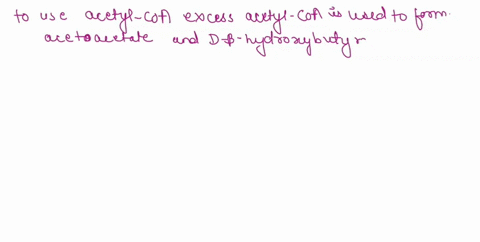 to use acetyl-CoA excess acetyl-CoA is used to form
acetoacetate and D-β-hydroxybutyr